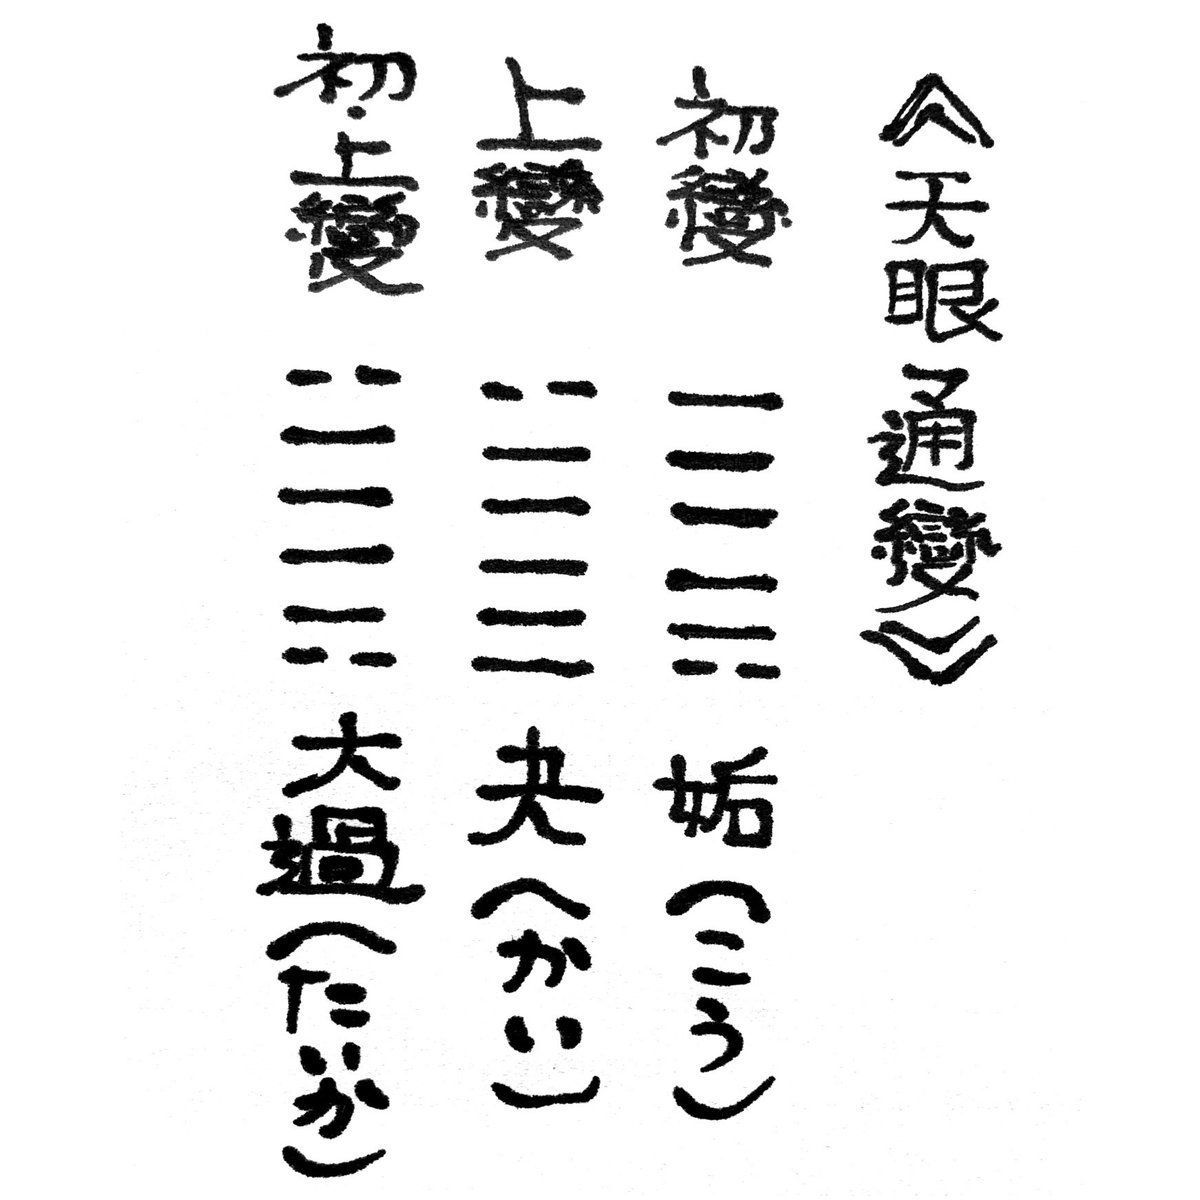 《天眼通變》
初變 ䷫ 姤(こう)
上變 ䷪ 夬(かい)
初・上變 ䷛ 大過(たいか)